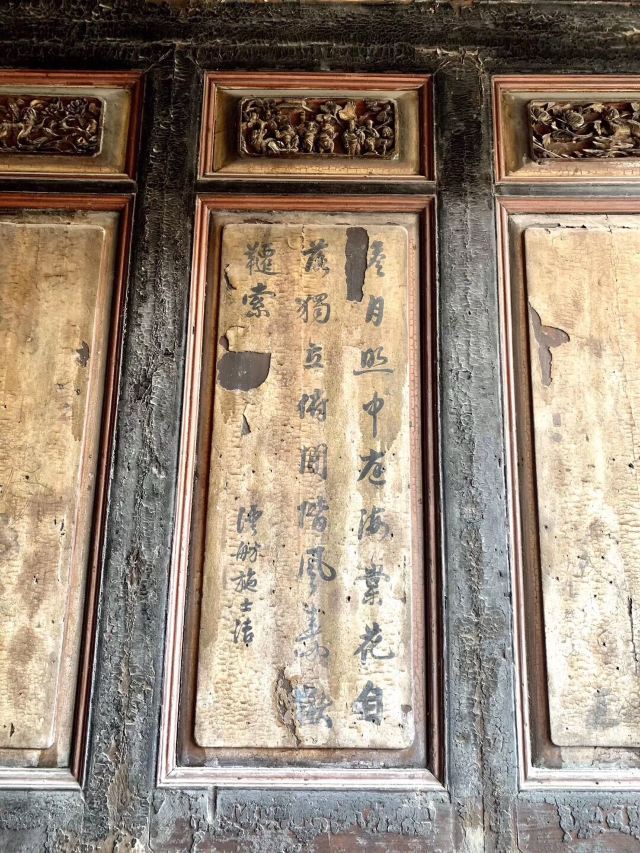 月照中庭海棠花自
落獨立俯閒階風動鞦
韆索
澐舫施士洁